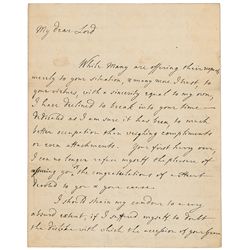 My dear Lord
While Many are offering their
merely to your situation, & many more I trust to
your virtues, with a sincerity equal to my own,
I have declined to break into your time —
dedicated as I am sure it has been to much
better occupation than weighing compliments
or even attachments. Your first levee over,
I can no longer refuse myself the pleasure of
offering you the congratulations of a Heart
devoted to you & your cause.
I should strain my candour to a very
absurd extent, if I affected myself to doubt
the decision with which the accession of your